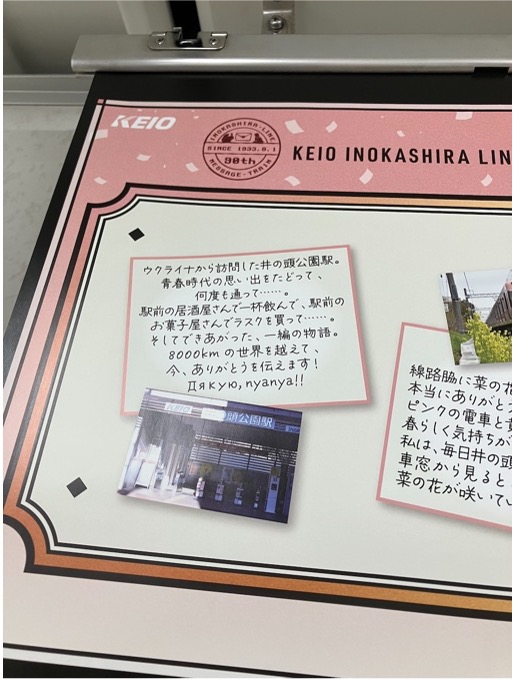 KEIO
INOKASHIRA-LINE
SINCE 1933.8.1
90th
MESSAGE-TRAIN
KEIO INOKASHIRA LIN
ウクライナから訪問した井の頭公園駅。
青春時代の思い出をたどって、
何度も通って……。
駅前の居酒屋さんで一杯飲んで、駅前の
お菓子屋さんでラスクを買って……。
そしてできあがった、一編の物語。
8000kmの世界を越えて、
今、ありがとうを伝えます！
Дякую, nyanya!!
KEIO
頭公園駅
線路脇に菜の花
本当にありがと
ピンクの電車と黄
春らしく気持ちが
私は、毎日井の頭
車窓から見ると
菜の花が咲いてい